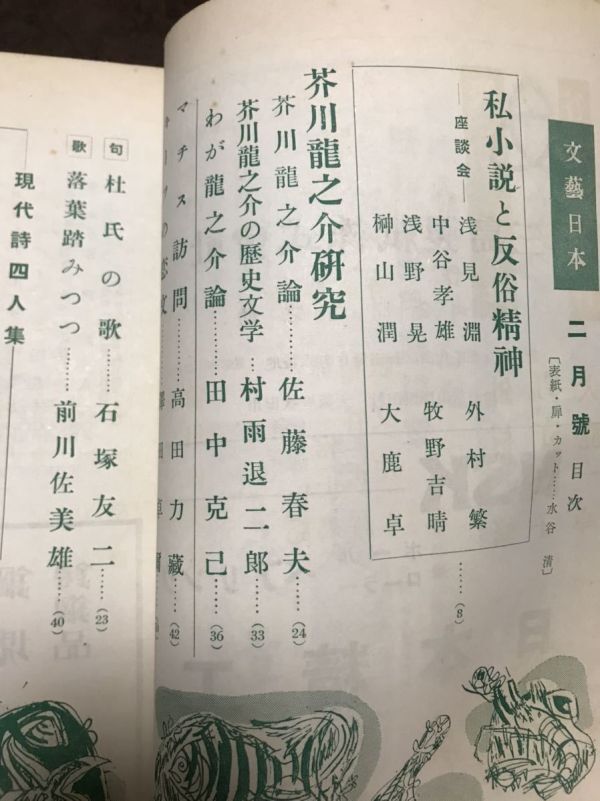 文藝日本
二月號目次
〔表紙・扉・カット……水谷 清〕
私小説と反俗精神
―座談会―
浅見淵 外村繁
中谷孝雄 牧野吉晴
浅野晃 大鹿卓
榊山潤
……(8)
芥川龍之介研究
芥川龍之介論………佐藤春夫……(24)
芥川龍之介の歴史文学…村雨退二郎……(33)
わが龍之介論………田中克己………(36)
マチス訪問………高田力藏……(42)
句 杜氏の歌………石塚友二……(23)
歌 落葉踏みつつ………前川佐美雄……(40)
現代詩四人集